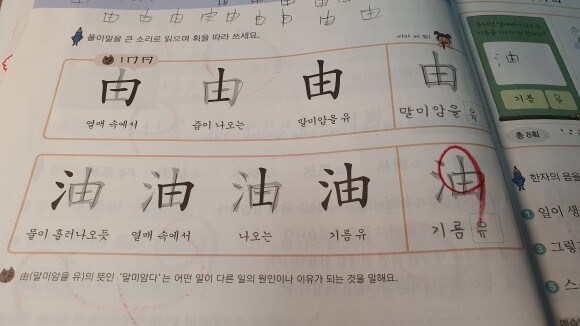 풀이말을 큰 소리로 읽으며 획을 따라 쓰세요.
由 由 由 由
열매 속에서 즙이 나오는 말미암을 유 말미암을 유
油 油 油 油 油
물이 흘러나오듯 열매 속에서 나오는 기름 유 기름 유
由(말미암을 유)의 뜻인 '말미암다'는 어떤 일이 다른 일의 원인이나 이유가 되는 것을 말해요.
油
기름 유
총 8획
한자의 음을
1 일이 생
2 그렇
3 스